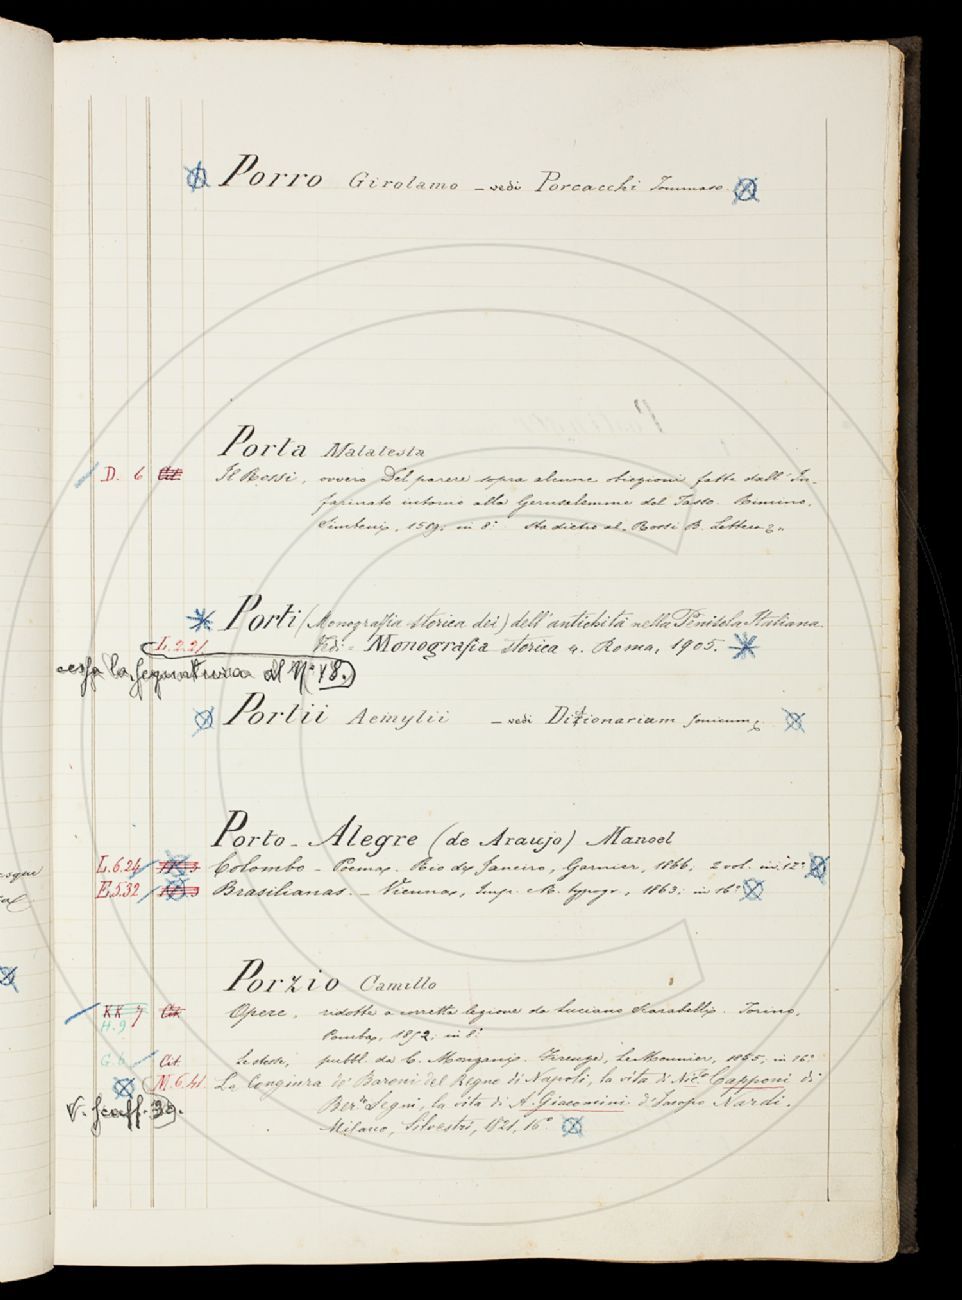 Porro Girolamo - vedi Porcacchi Tommaso
Porta Malatesta
D. 6 Il Rossi, ovvero Del parere sopra alcune obiezioni fatte dall'In-
farinato intorno alla Gerusalemme del Tasso. Rimino,
1589. in 8° Sta dietro al "Rossi B. Lettera"
Porti (Monografia storica dei) dell'antichità nella Penisola Italiana.
L.2.21 Vedi = Monografia storica &. Roma, 1905.
la segnatura al N° 48.
Portii Aemylii - vedi Dictionarium Jonicum
Porto-Alegre (de Araujo) Manoel
L.6.24 Colombo - Poema. Rio de Janeiro, Garnier, 1866, 2 vol. in 12°
E.5.32 Brasilianas. - Vienna, Imp. typogr., 1863. in 16°
Porzio Camillo
KK 7 Opere, ridotte a corretta lezione da Luciano Scarabelli. Torino,
H.9 Pomba, 1852, in 8°
G.6 Cit. Le stesse, pubbl. da C. Monzani. Firenze, Le Monnier, 1855, in 16°
M.6.41 La Congiura de' Baroni del Regno di Napoli, la vita di Nic.° Capponi di
V. scaff. 39. Ber.do Segni, la vita di A. Giacomini di Jacopo Nardi.
Milano, Silvestri, 1821, 16°